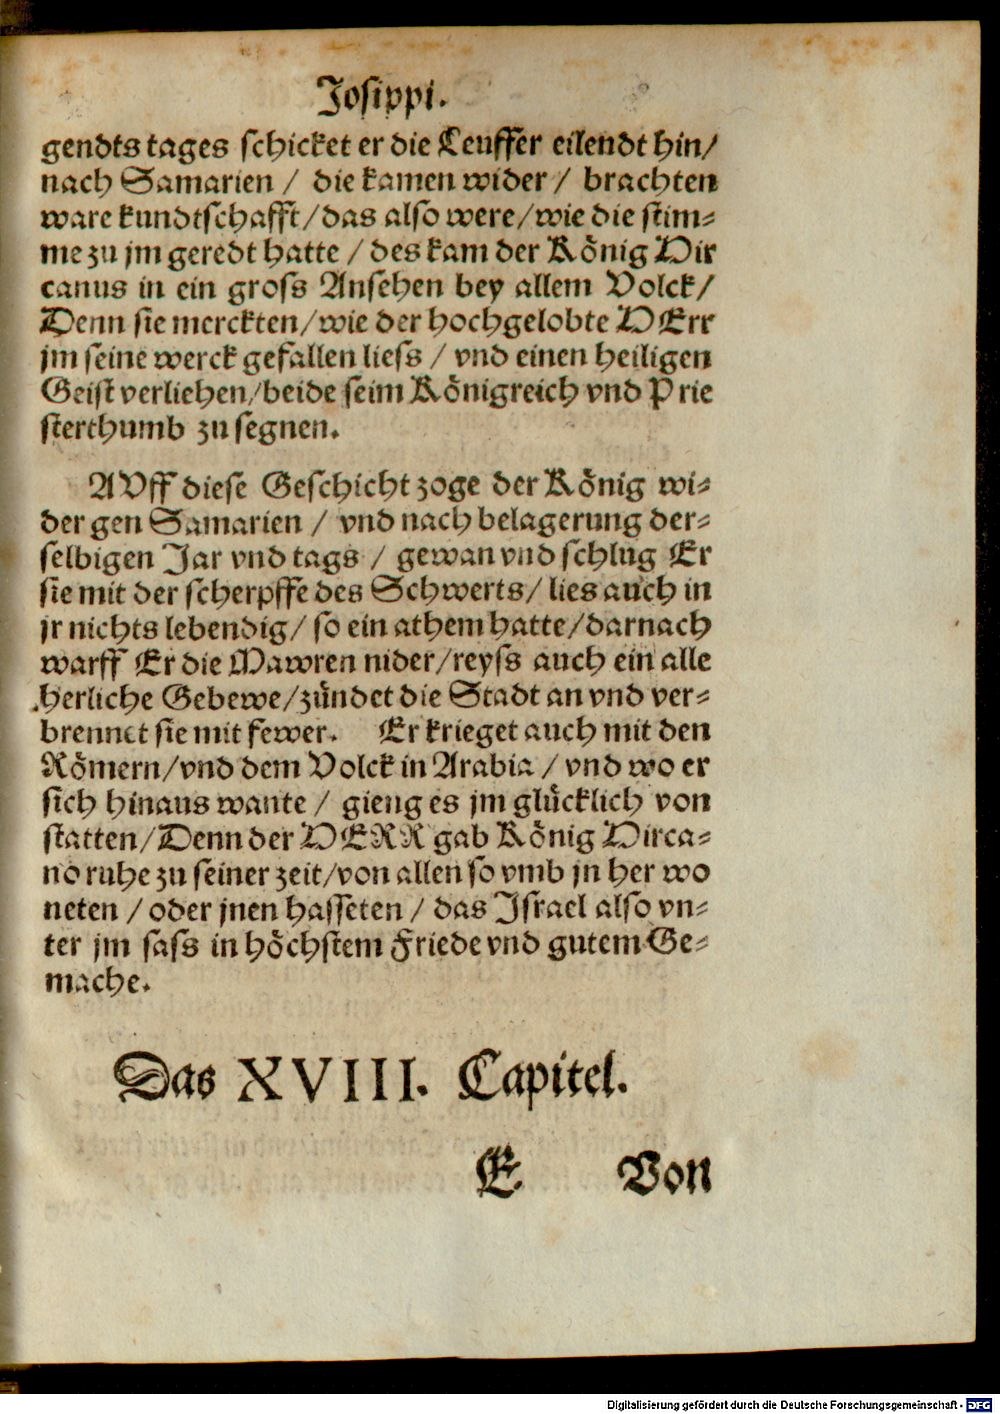 Josippi.
gendts tages schicket er die Leuffer eilendt hin/
nach Samarien / die kamen wider / brachten
ware kundtschafft/das also were/wie die stim⸗
me zu jm geredt hatte / des kam der König Hir
canus in ein gross Ansehen bey allem Volck/
Denn sie merckten/wie der hochgelobte HErr
jm seine werck gefallen liess / vnd einen heiligen
Geist verliehen/beide seim Königreich vnd Prie
sterthumb zu segnen.
AVff diese Geschicht zoge der König wi⸗
der gen Samarien / vnd nach belagerung der⸗
selbigen Jar vnd tags / gewan vnd schlug Er
sie mit der scherpffe des Schwerts/ lies auch in
jr nichts lebendig/ so ein athem hatte/darnach
warff Er die Mawren nider/reyss auch ein alle
herliche Gebewe/zündet die Stadt an vnd ver⸗
brennet sie mit fewer. Er krieget auch mit den
Römern/vnd dem Volck in Arabia / vnd wo er
sich hinaus wante / gieng es jm glücklich von
statten/Denn der HERR gab König Hirca⸗
no ruhe zu seiner zeit/von allen so vmb jn her wo
neten / oder jnen hasseten / das Israel also vn⸗
ter jm sass in höchstem Friede vnd gutem Ge⸗
mache.
Das XVIII. Capitel.
E Von
Digitalisierung gefördert durch die Deutsche Forschungsgemeinschaft - DFG